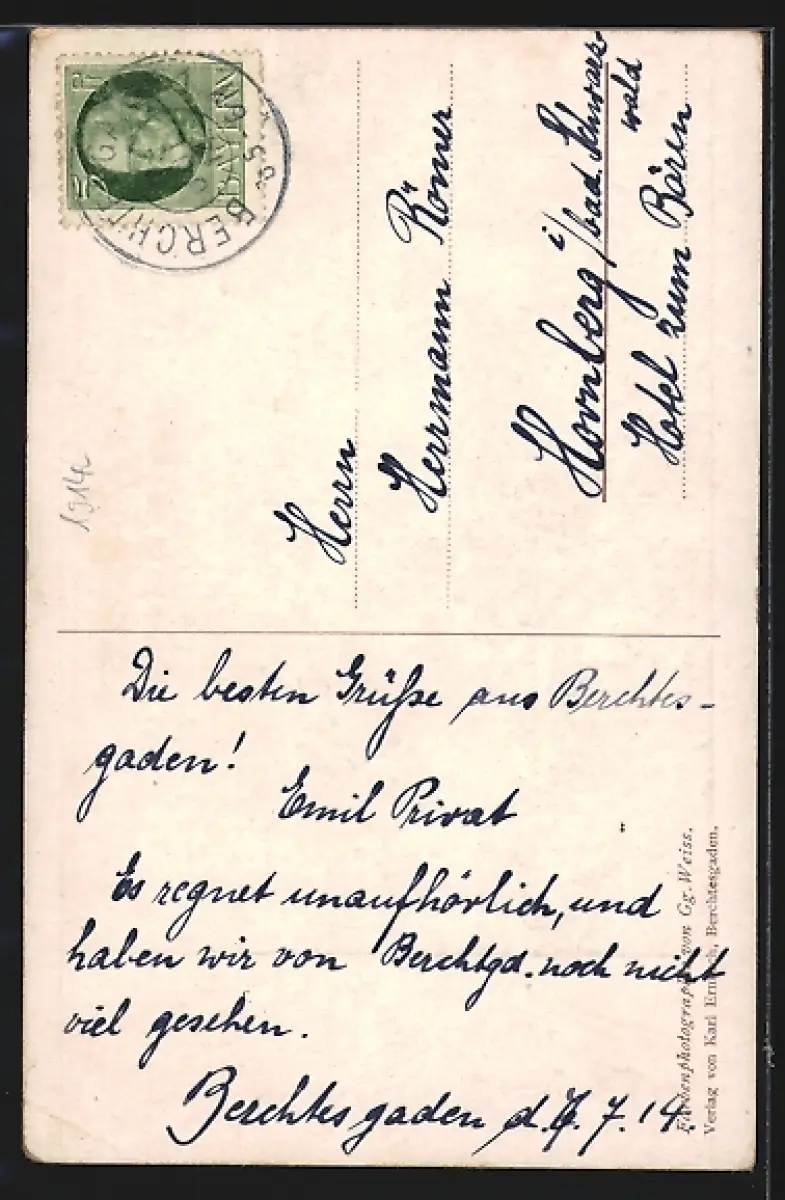 BAYERN
5 PF
BERCHTESGADEN
1914
Herrn
Herrmann Römer
Hornberg i/bad. Schwarz
wald
Hotel zum Bären
Die besten Grüße aus Berchtes-
gaden!
Emil Privat
Es regnet unaufhörlich, und
haben wir von Berchtgd. noch nicht
viel gesehen.
Berchtesgaden d. 7. 14.
Farbenphotographie von Gg. Weiss.
Verlag von Karl Ermisch, Berchtesgaden.